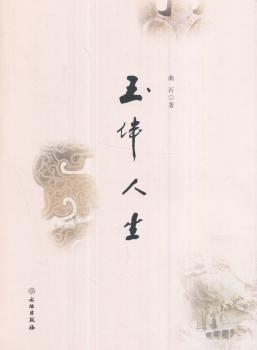 玉伴人生
曲石○著
文物出版社